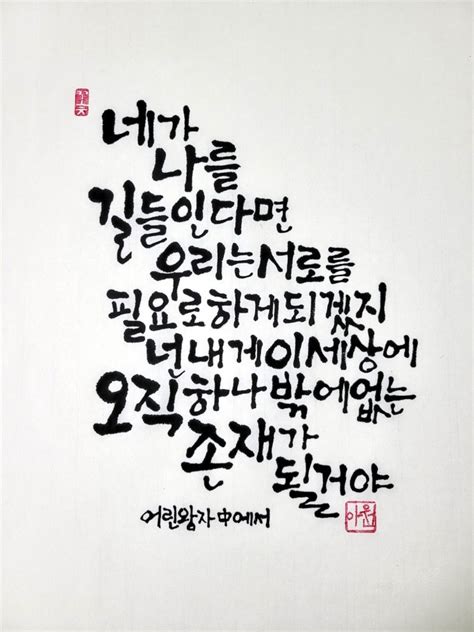 네가
나를
길들인다면
우리는서로를
필요로하게되겠지
넌내게이세상에
오직하나밖에없는
존재가
될거야
어린왕자中에서